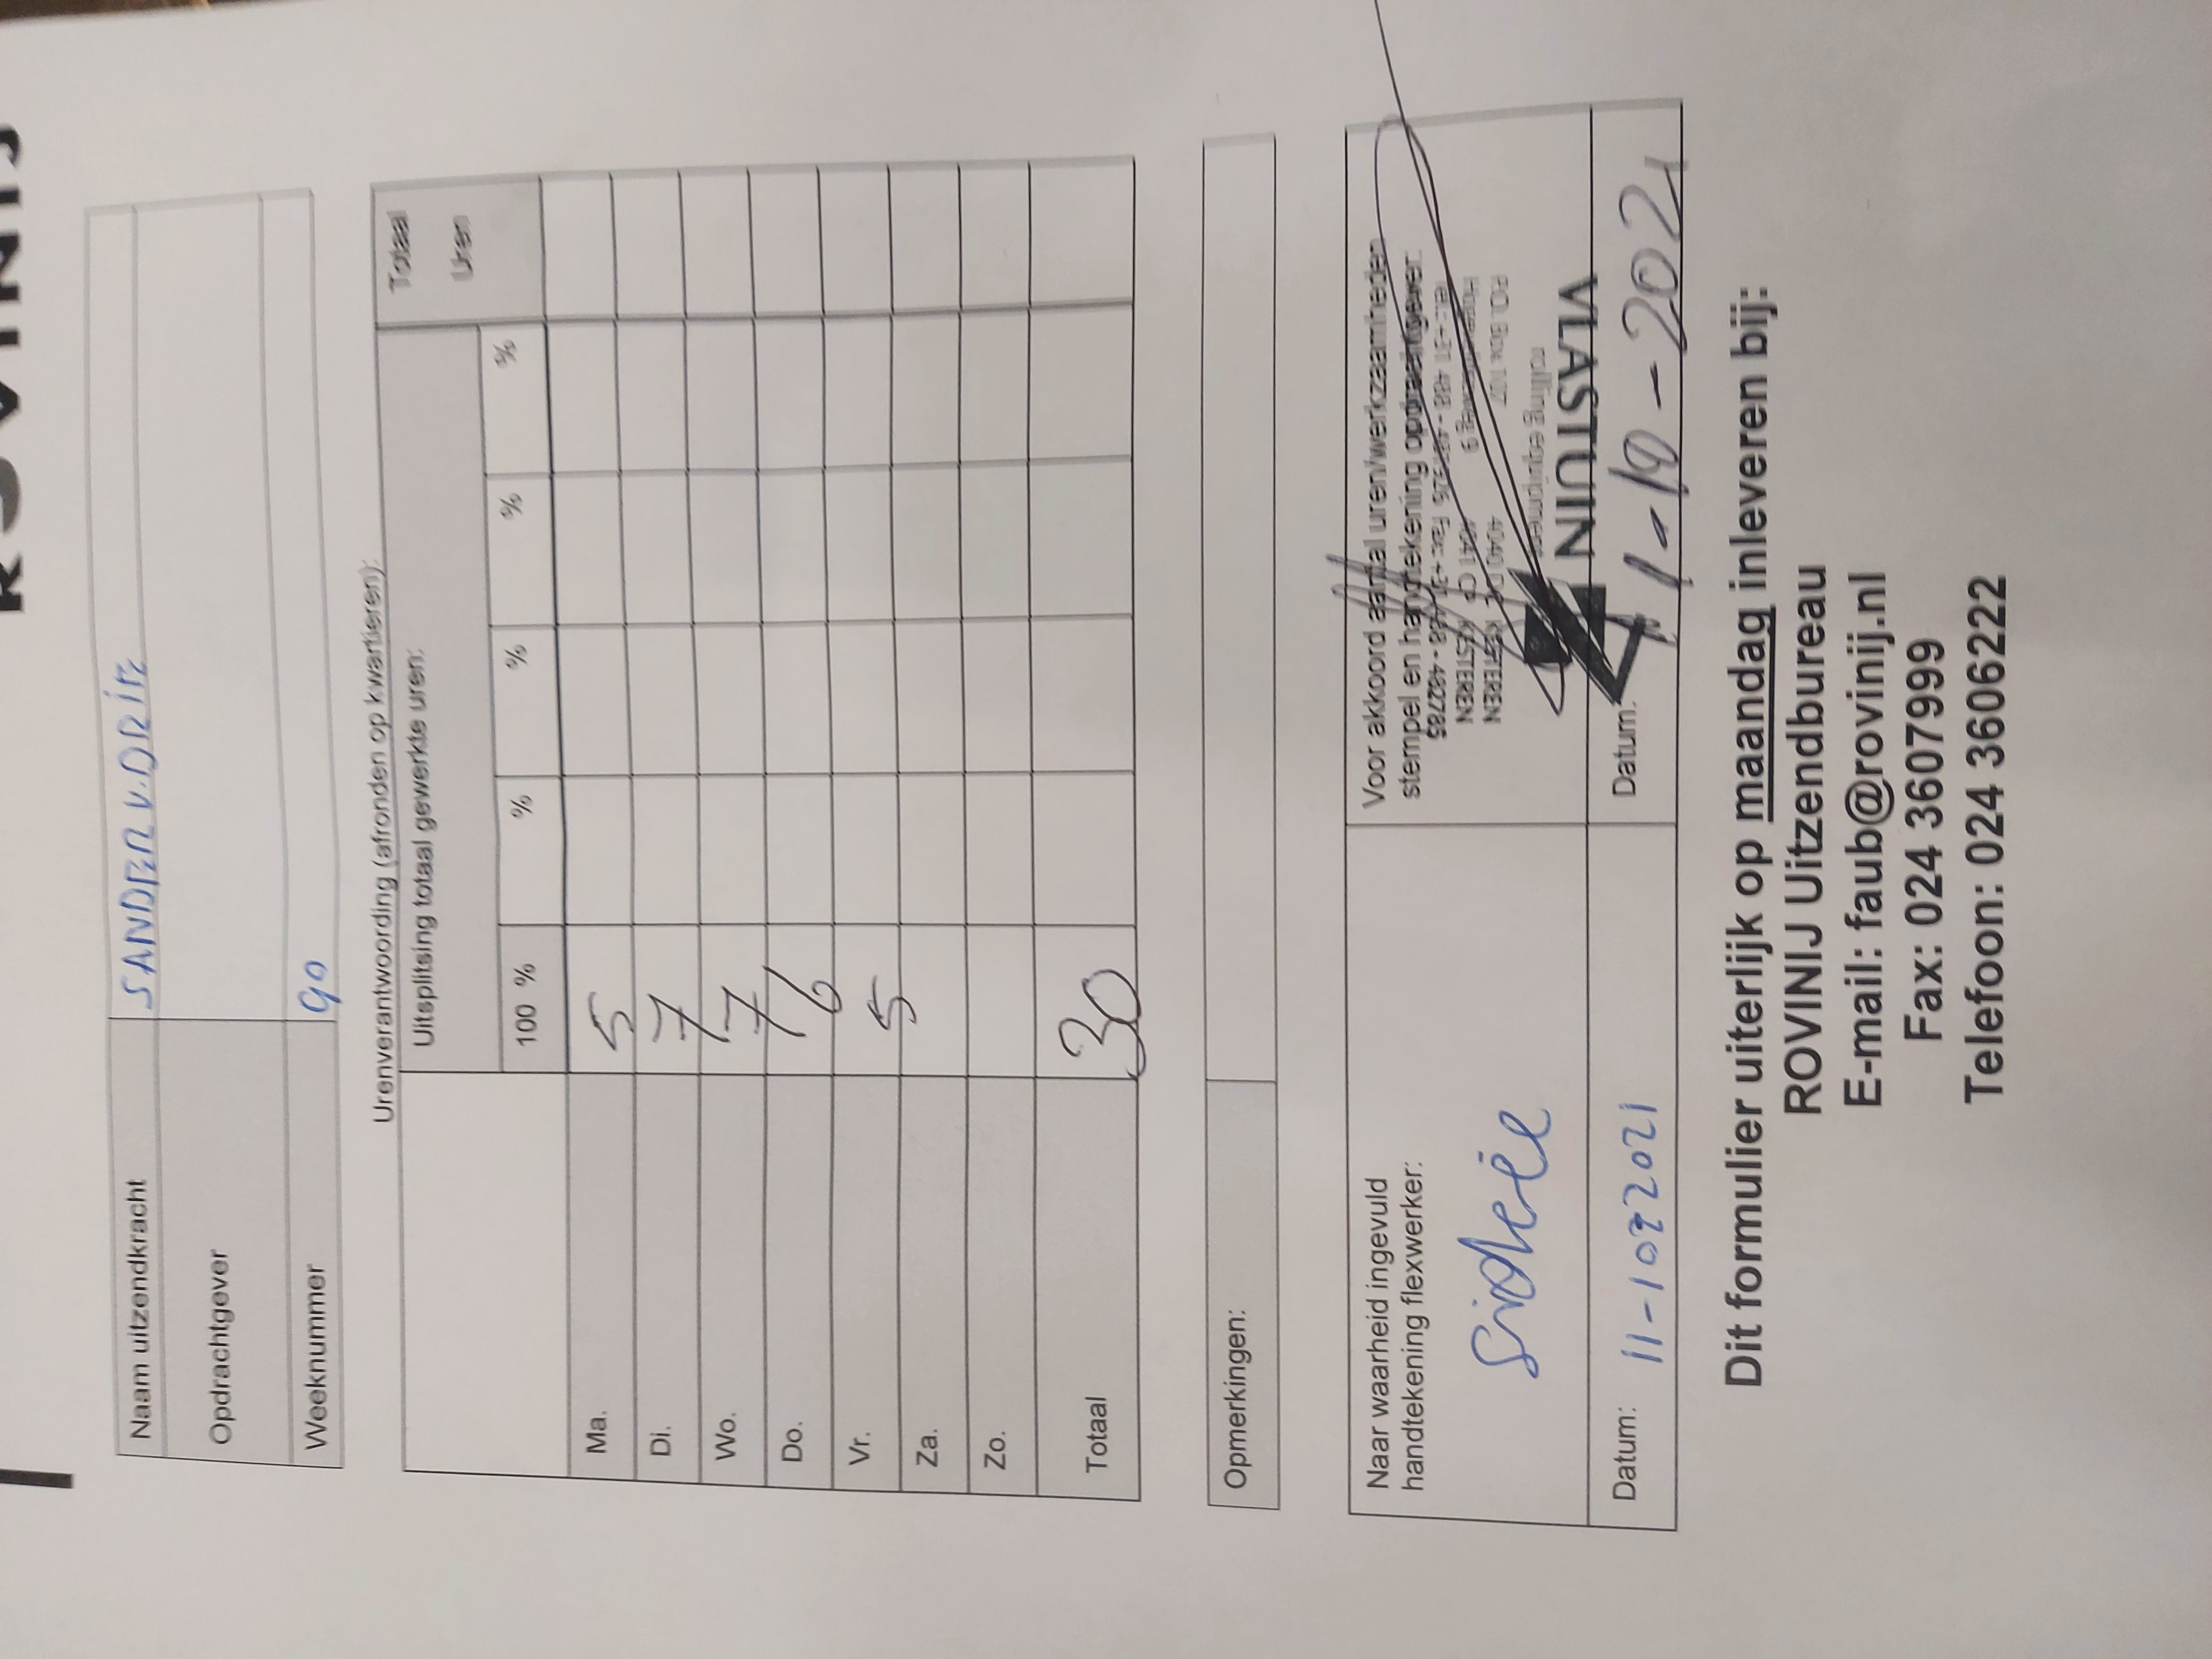 ROVINIJ
Naam uitzendkracht SANDER V. DRIE
Opdrachtgever
Weeknummer 40
Urenverantwoording (afronden op kwartieren):
Uitsplitsing totaal gewerkte uren: Totaal
Uren
100 % % % % %
Ma. 5
Di. 7
Wo. 7
Do. 6
Vr. 5
Za.
Zo.
Totaal 30
Opmerkingen:
Naar waarheid ingevuld
handtekening flexwerker:
Voor akkoord aantal uren/werkzaamheden
stempel en handtekening opdrachtgever:
VLASTUIN
rolling equipment
P.O. Box 107 4040 DC KESTEREN
4041 CP KESTEREN
Datum: 11-10-2021
Datum: 11-10-2021
Dit formulier uiterlijk op maandag inleveren bij:
ROVINIJ Uitzendbureau
E-mail: faub@rovinij.nl
Fax: 024 3607999
Telefoon: 024 3606222